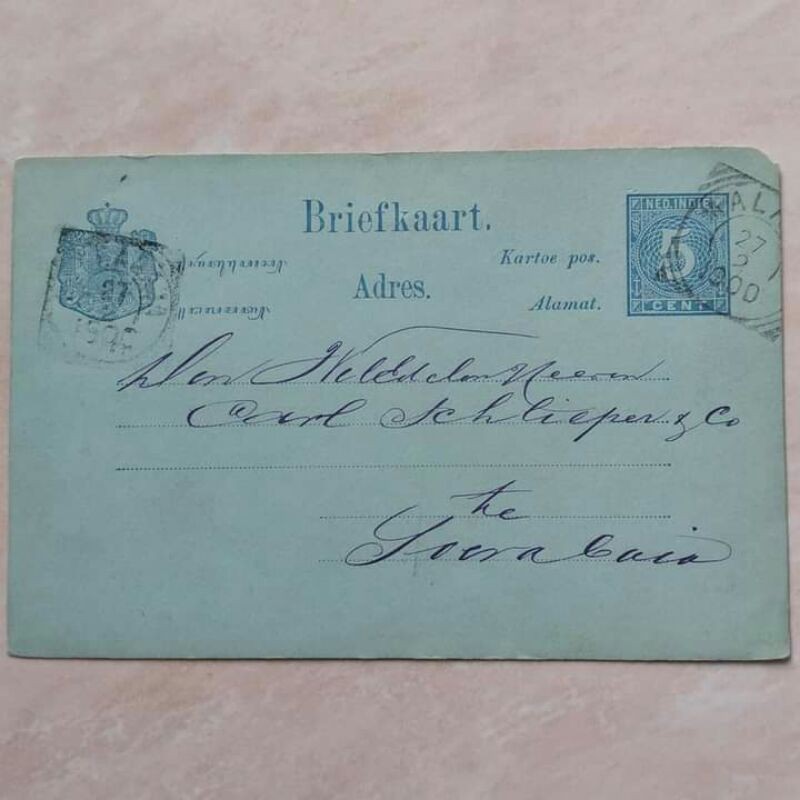 Briefkaart.
NED. INDIE
5
CENT
Kartoe pos.
Adres.
Alamat.
27
1900
27
Den Weledelen Heeren
Carl Schlieper & Co
te
Soerabaia